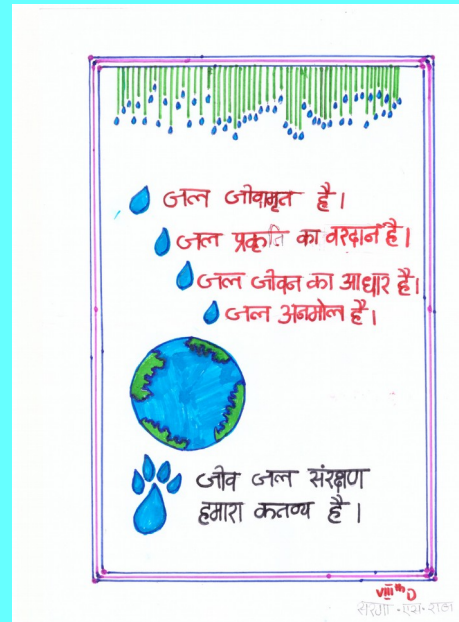 जल जीवामृत है।
जल प्रकृति का वरदान है।
जल जीवन का आधार है।
जल अनमोल है।
जीव जल संरक्षण
हमारा कतव्य है।
VIIIth D